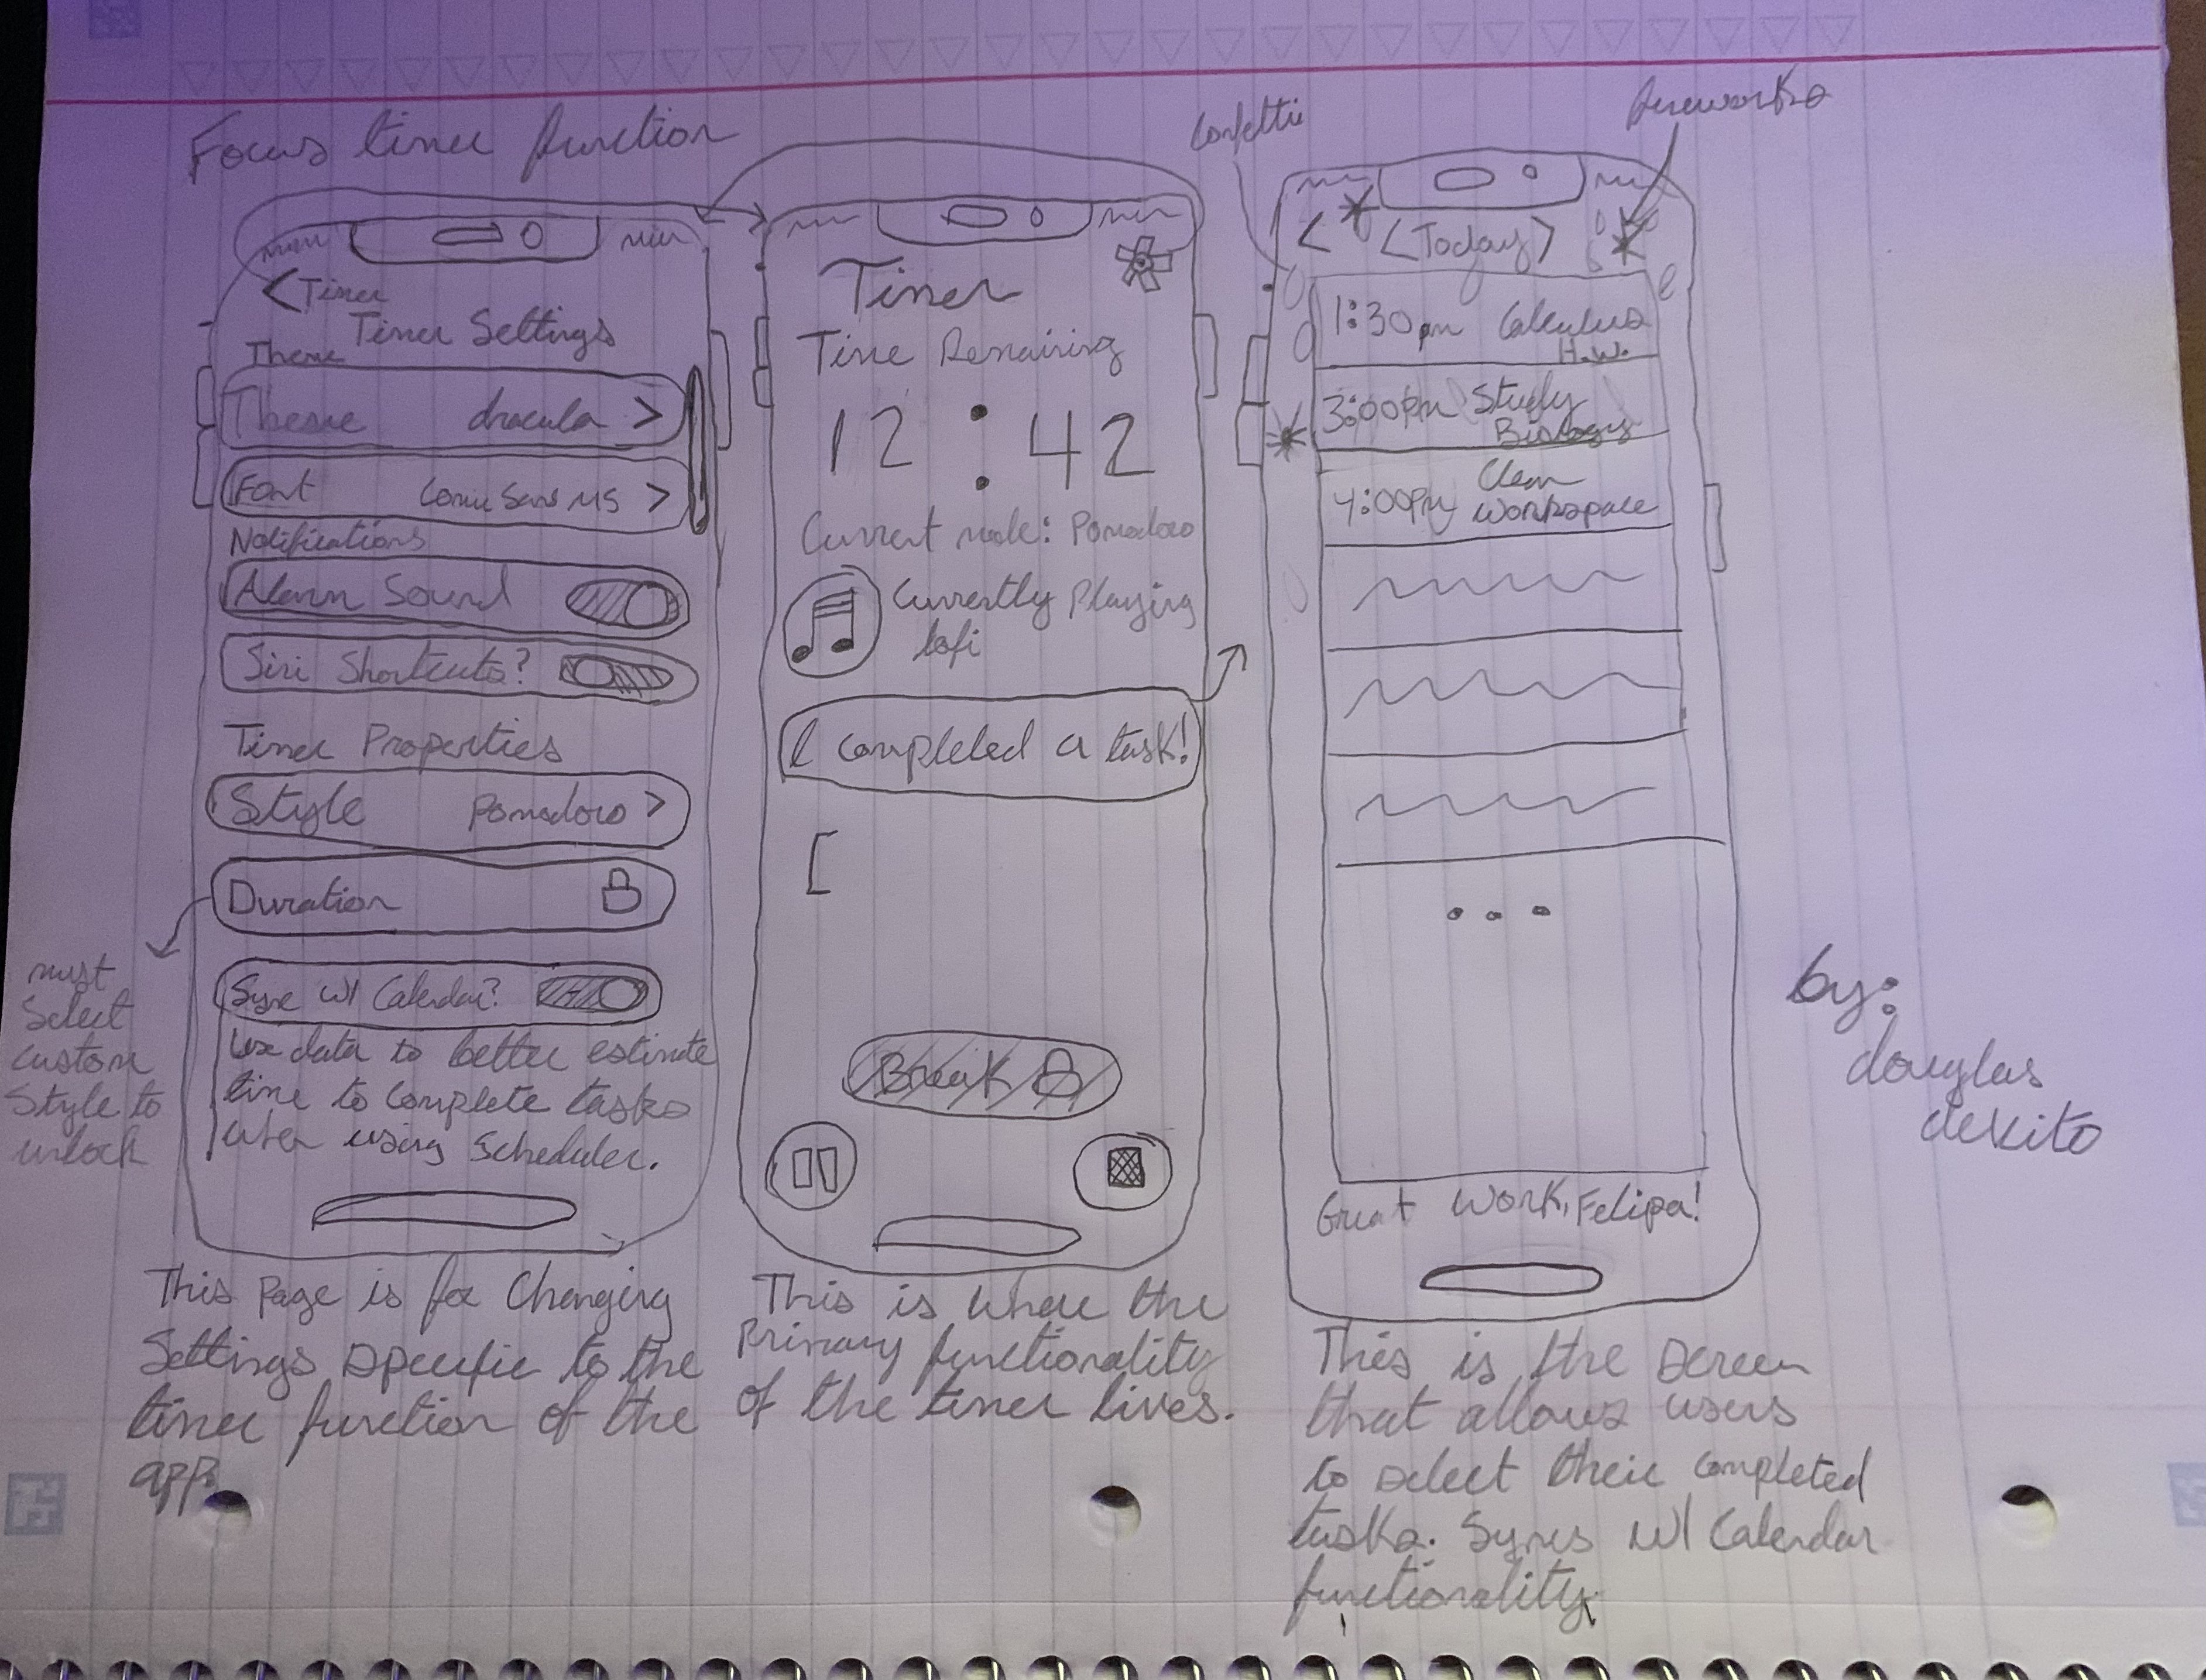 Focus timer function
Confetti
fireworks
< Timer
Timer Settings
Theme
Theme dracula >
Font Comic Sans MS >
Notifications
Alarm Sound
Siri Shortcuts?
Timer Properties
Style Pomodoro >
Duration
must
Select
custom
Style to
unlock
Sync w/ Calendar?
Use data to better estimate
time to complete tasks
when using Scheduler.
This Page is for Changing
Settings specific to the
timer function of the
app.
Timer
Time Remaining
12:42
Current mode: Pomodoro
Currently Playing
lofi
I completed a task!
[
Break
This is where the
Primary functionality
of the timer lives.
< <Today>
1:30pm Calculus
H.W.
3:00pm Study
Biology
4:00pm Clean
workspace
...
Great Work, Felipa!
This is the screen
that allows users
to select their completed
tasks. Syncs w/ Calendar
functionality.
by:
douglas
dekito